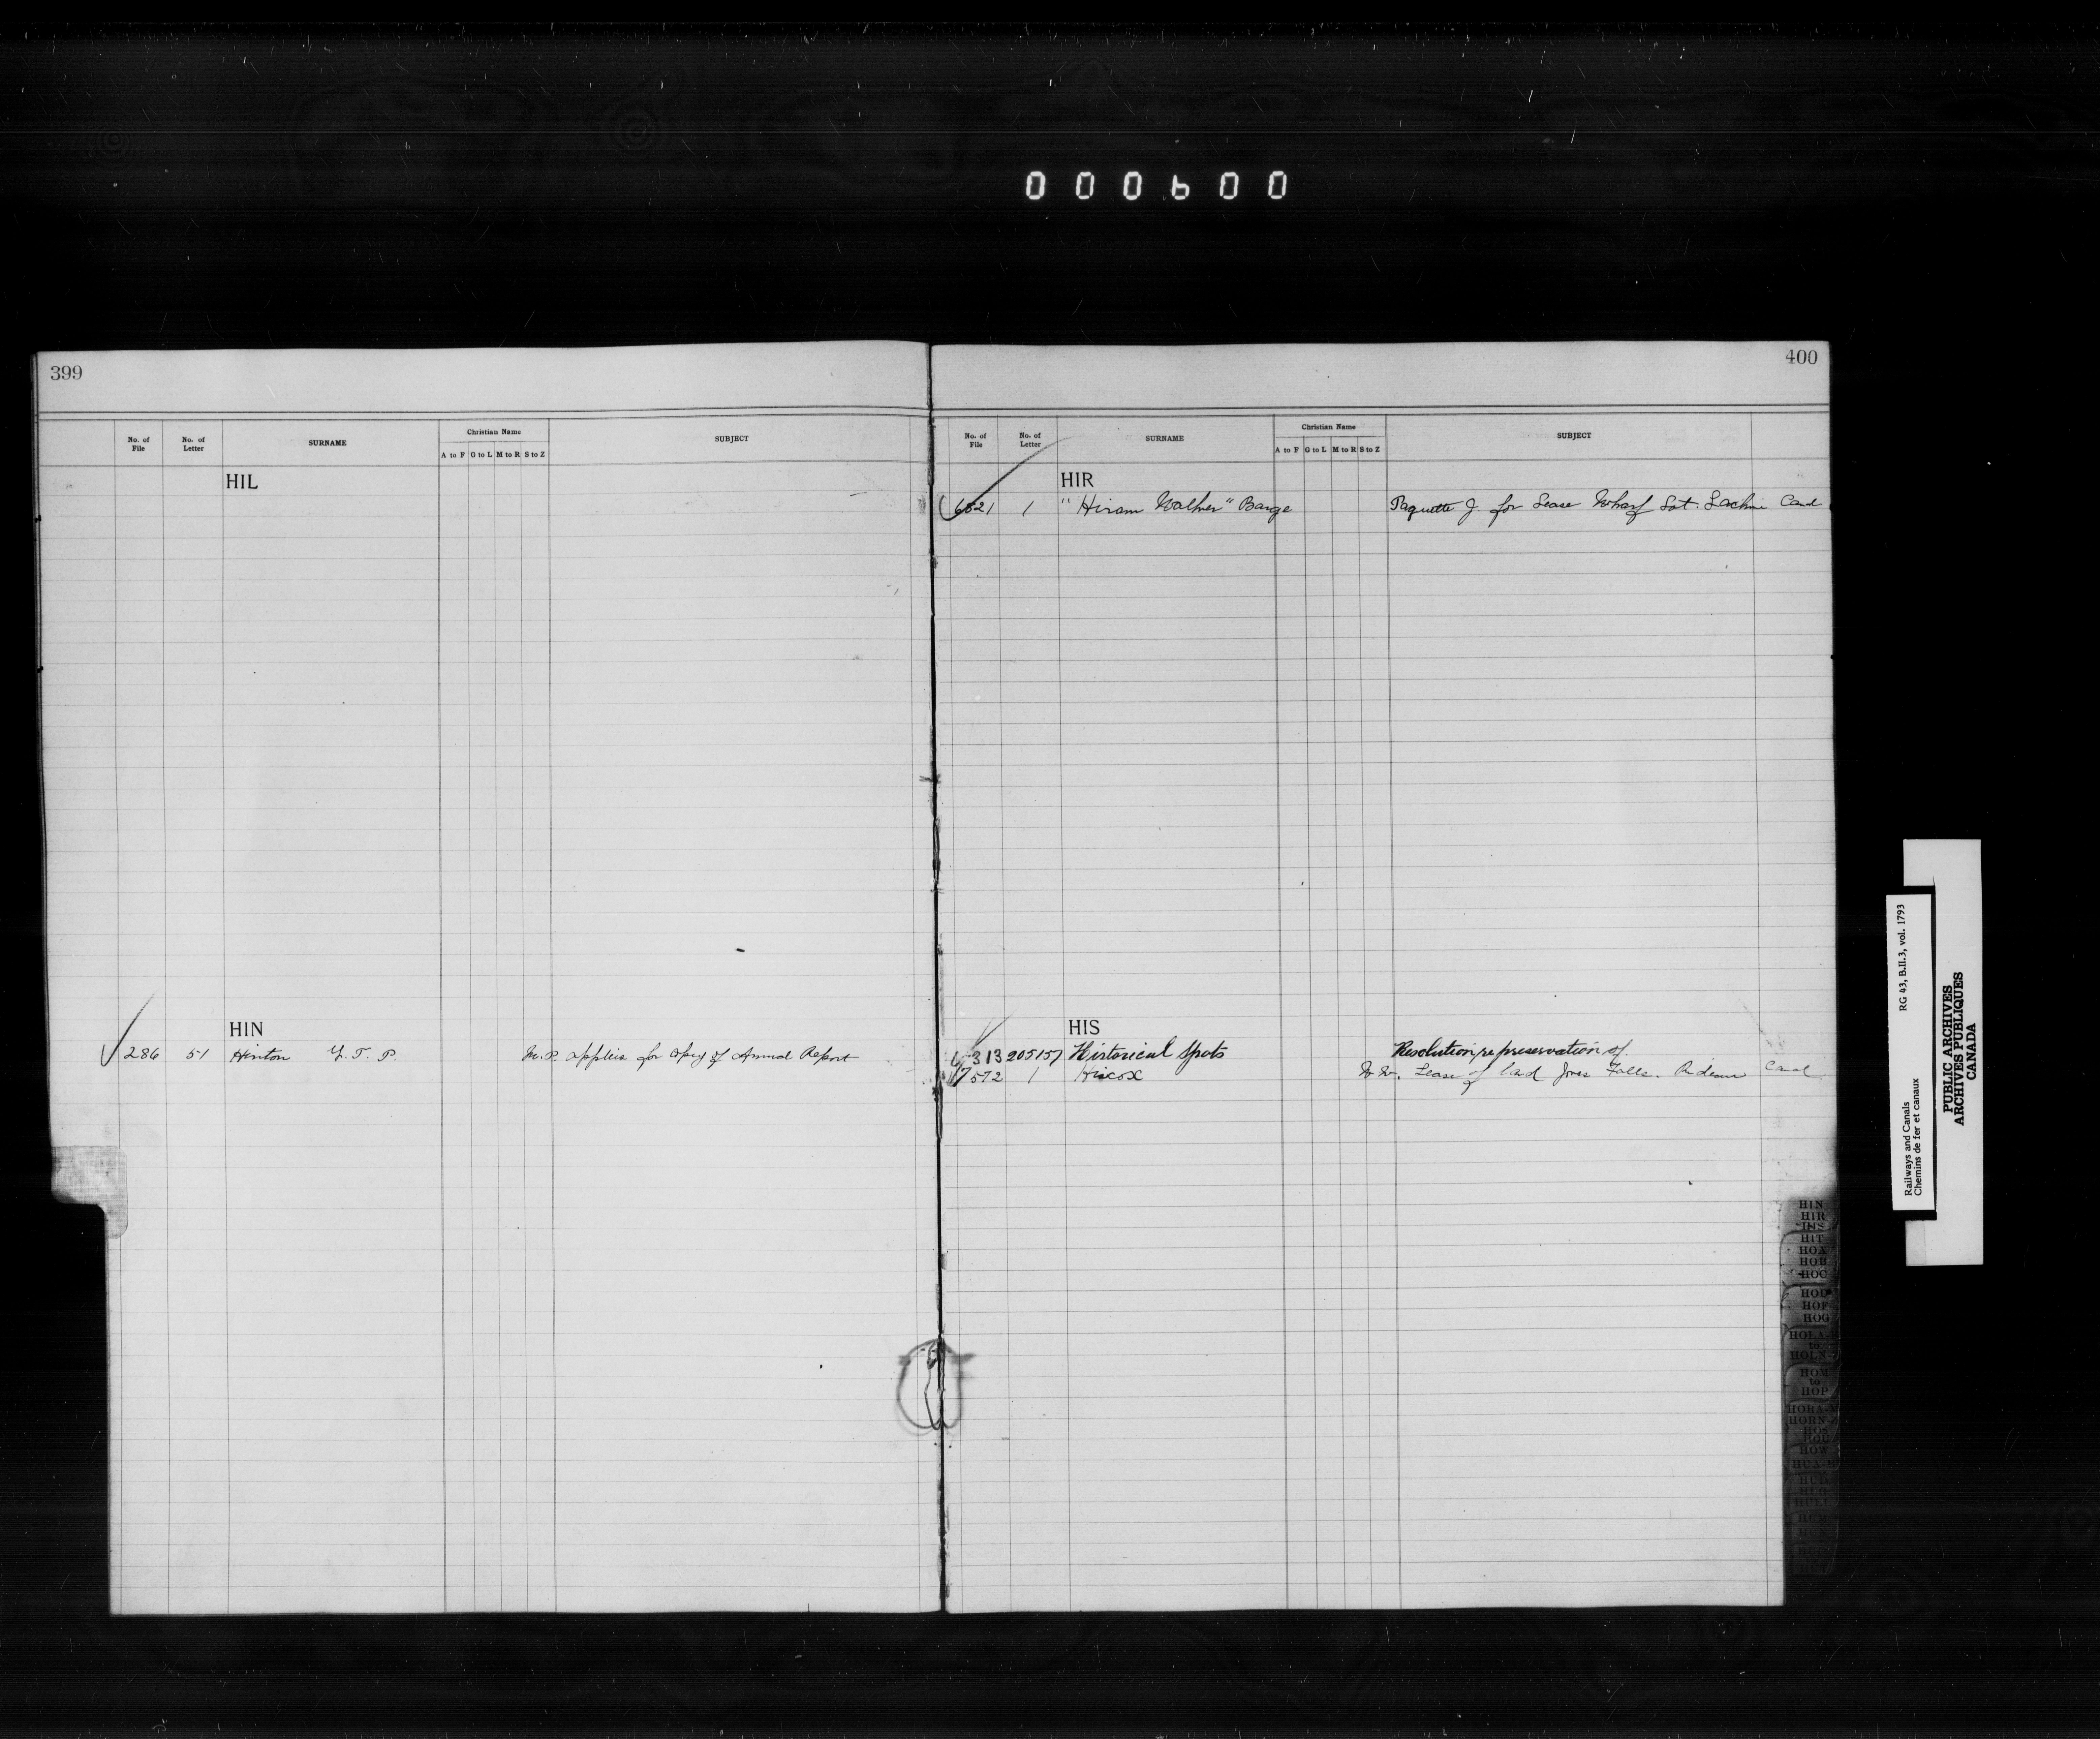 000600
399
No. of File No. of Letter SURNAME Christian Name SUBJECT
A to F G to L M to R S to Z
HIL
HIN
286 51 Hinton Y. T. P. M. P. applies for copy of Annual Report
400
No. of File No. of Letter SURNAME Christian Name SUBJECT
A to F G to L M to R S to Z
HIR
6521 1 "Hiram Walker" Barge Paquette J. for Lease Wharf Lot. Lachine Canal
HIS
313 205157 Historical Spots Resolution re preservation of
7572 1 Hiscox W. W. Lease of land Jones Falls. Rideau Canal
HIN
HIR
HIS
HIT
HOA
HOB
HOC
HOD
HOF
HOG
HOLA-
to
HOLN-
HOM
to
HOP
HORA-
HORN-
HOS
HOU
HOW
HUA-
HUD
HUG
HULL
Railways and Canals RG 43, B.II.3, vol. 1793
Chemins de fer et canaux
PUBLIC ARCHIVES
ARCHIVES PUBLIQUES
CANADA